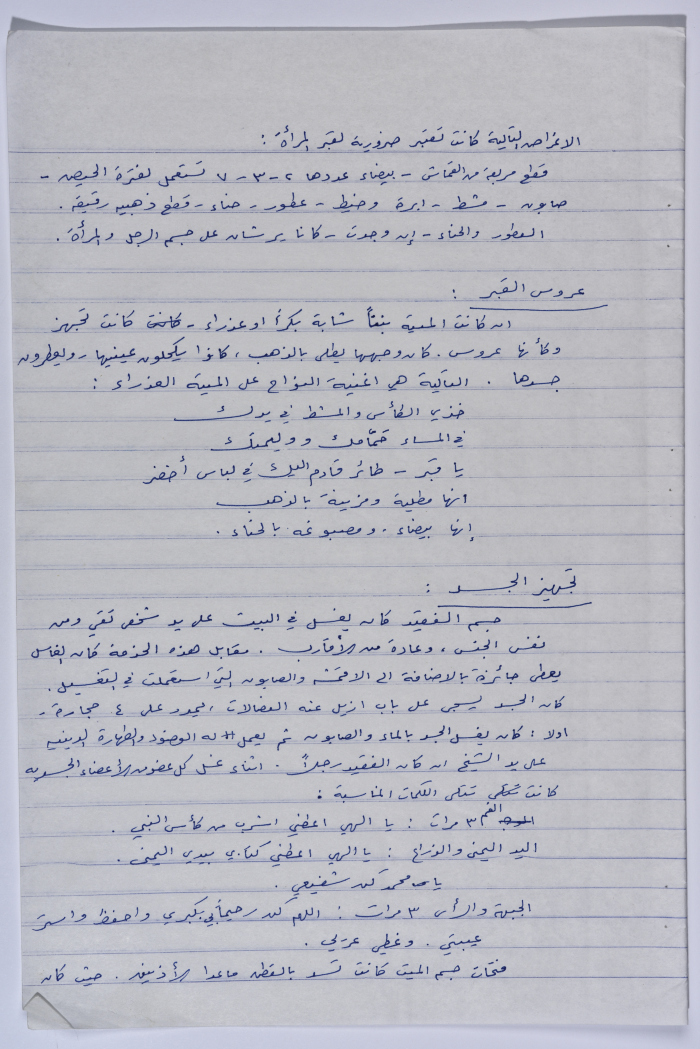 الاغراض التالية كانت تعتبر ضرورية لقبر المرأة :
قطع مربعة من القماش - بيضاء عددها ٢ - ٣ - ٧ تستعمل لفترة الحيض -
صابون - مشط - ابرة وخيط - عطور - حناء - قطع ذهبيه رقيقة .
العطور والحناء - إن وجدت - كانا يرشان على جسم الرجل والمرأة .
عروس القبر :
ان كانت الميتة بنتاً شابة بكراً او عذراء - كانت كانت تجهز
وكأنها عروس . كان وجهها يطلى بالذهب ، كانوا يكحلون عينيها - ويعطرون
جسدها . التالية هي اغنية النواح على الميتة العذراء :
خذي الكأس والمشط في يدك
في المساء حمّامك ووليمتك
يا قبر - طائر قادم اليك في لباس أخضر
انها مطلية ومزينة بالذهب
إنها بيضاء . ومصبوغه بالحناء .
تجهيز الجسد :
جسم الفقيد كان يغسل في البيت على يد شخص تقي ومن
نفس الجنس ، وعادة من الأقارب . مقابل هذه الخدمة كان الغاسل
يعطى جائزة بالاضافة الى الاقمشه والصابون التي استعملت في التغسيل .
كان الجسد يسجى على باب ازيل عنه الفصالات ، ليمدد على ٤ حجارة .
اولا : كان يغسل الجسد بالماء والصابون ثم يعمل له الوضوء والطهارة الدينيه
على يد الشيخ ان كان الفقيد رجلاً . اثناء غسل كل عضو من الأعضاء الجسديه
كانت تتلى الكلمات المناسبة :
الفم ٣ مرات : يا الهي اعطني اشرب من كأس النبي .
اليد اليمنى والذراع : يا الهي اعطني كتابي بيدي اليمنى .
يا محمد كن شفيعي .
الجبهة والرأس ٣ مرات : اللهم كن رحيماً بي بكبري واحفظ واستر
عيبتي . وغطي عريي .
فتحات جسم الميت كانت تسد بالقطن ماعدا الأذنين . حيث كان